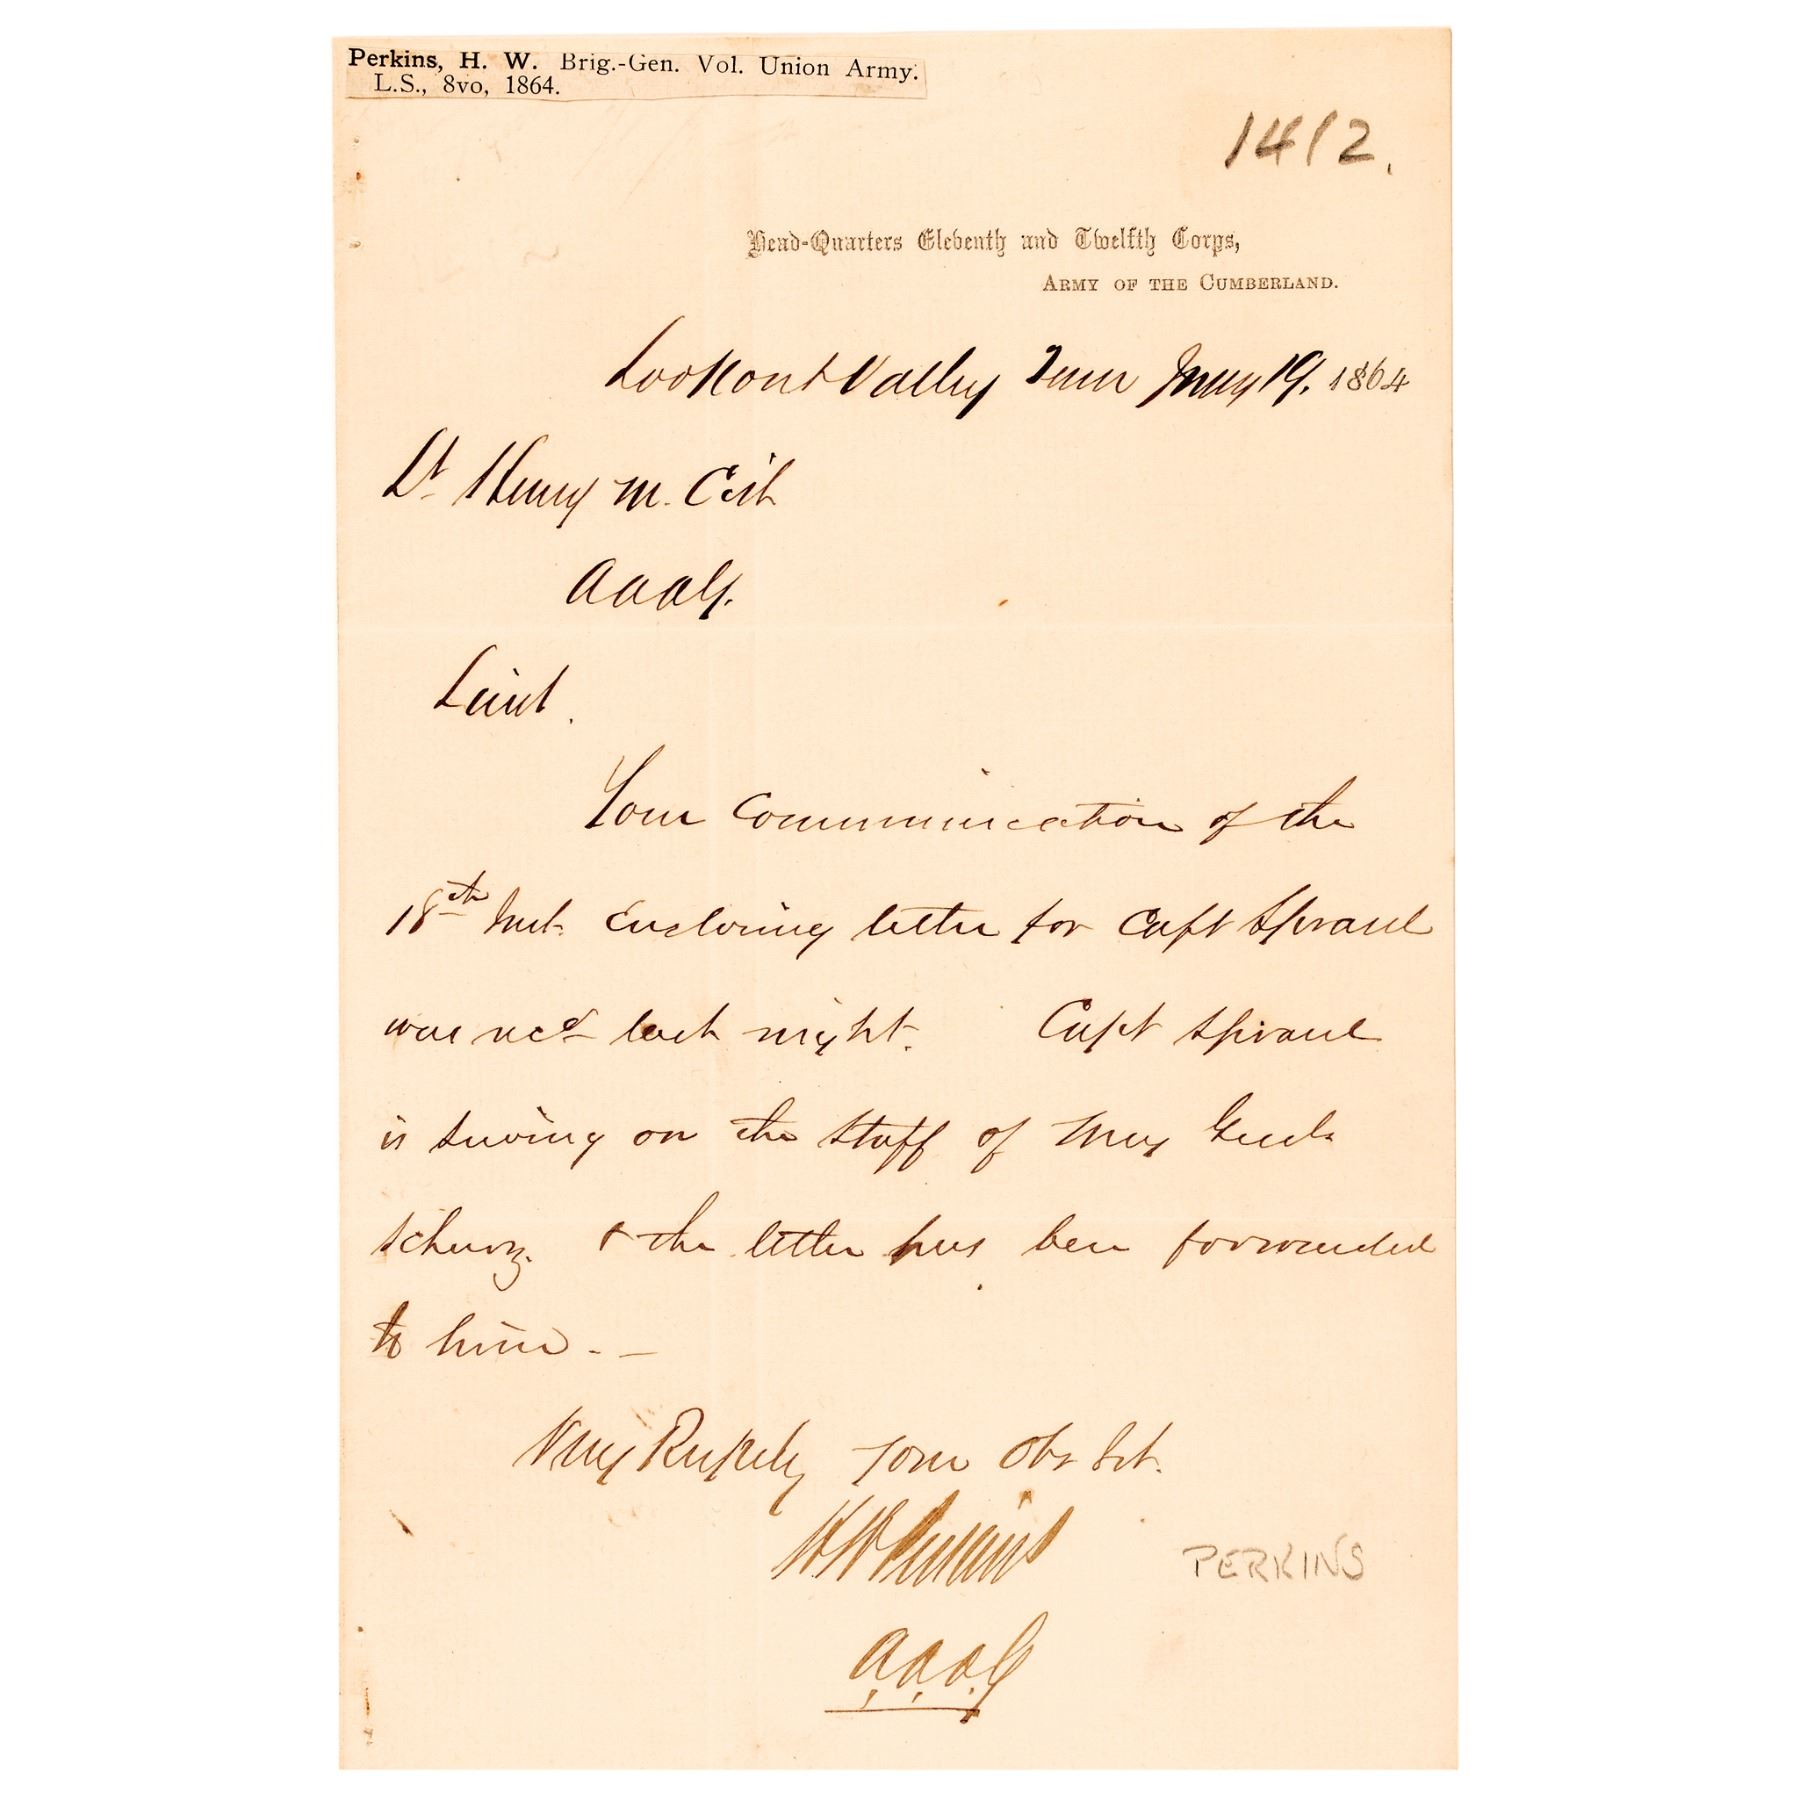 Perkins, H. W. Brig.-Gen. Vol. Union Army.
L.S., 8vo, 1864.
1412.
Head-Quarters Eleventh and Twelfth Corps,
Army of the Cumberland.
Lookout Valley Tenn 19, 1864
Lt Henry M. Cist
A A A G.
Lieut.
Your communication of the
18th Inst. Enclosing letter for Capt
was recd last night. Capt
is serving on the staff of Maj Genl.
Schurz. & the letter has been forwarded
to him. —
Very Respcly Your Obt Svt.
H W Perkins
A.A.A.G
PERKINS